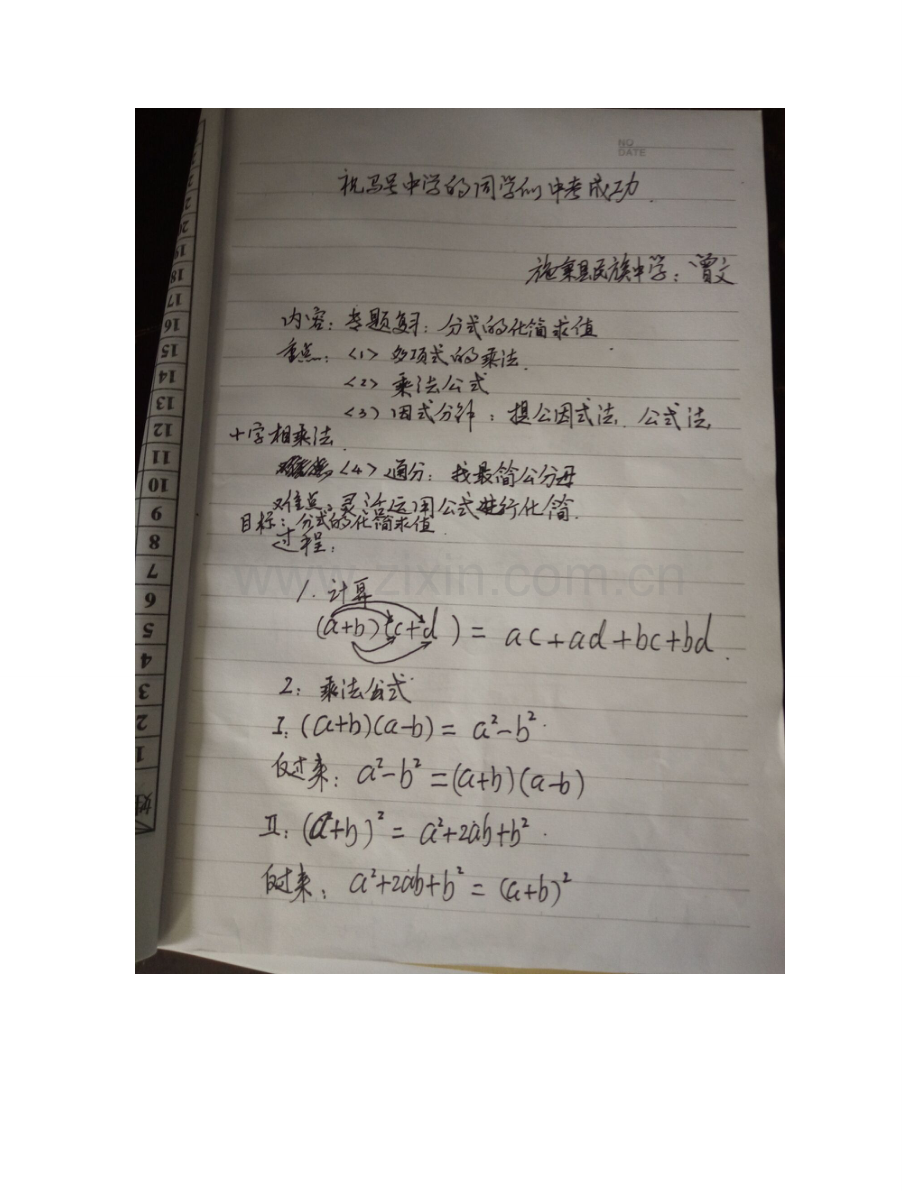 NO
DATE
祝马号中学的同学们中考成功.
施秉县民族中学：曾文
内容：专题复习：分式的化简求值
重点：<1> 多项式的乘法.
<2> 乘法公式
<3> 因式分解：提公因式法. 公式法,
十字相乘法.
<4> 通分：找最简公分母
难点：灵活运用公式进行化简.
目标：分式的化简求值
过程：
www.zixin.com.cn
1. 计算
(a+b)(c+d) = ac+ad+bc+bd.
2：乘法公式
I：(a+b)(a-b) = a²-b².
反过来：a²-b²=(a+b)(a-b)
II：(a+b)² = a²+2ab+b².
反过来：a²+2ab+b² = (a+b)²
姓
1
2
3
4
5
6
7
8
9
10
11
12
13
14
15
16
17
18
19
20